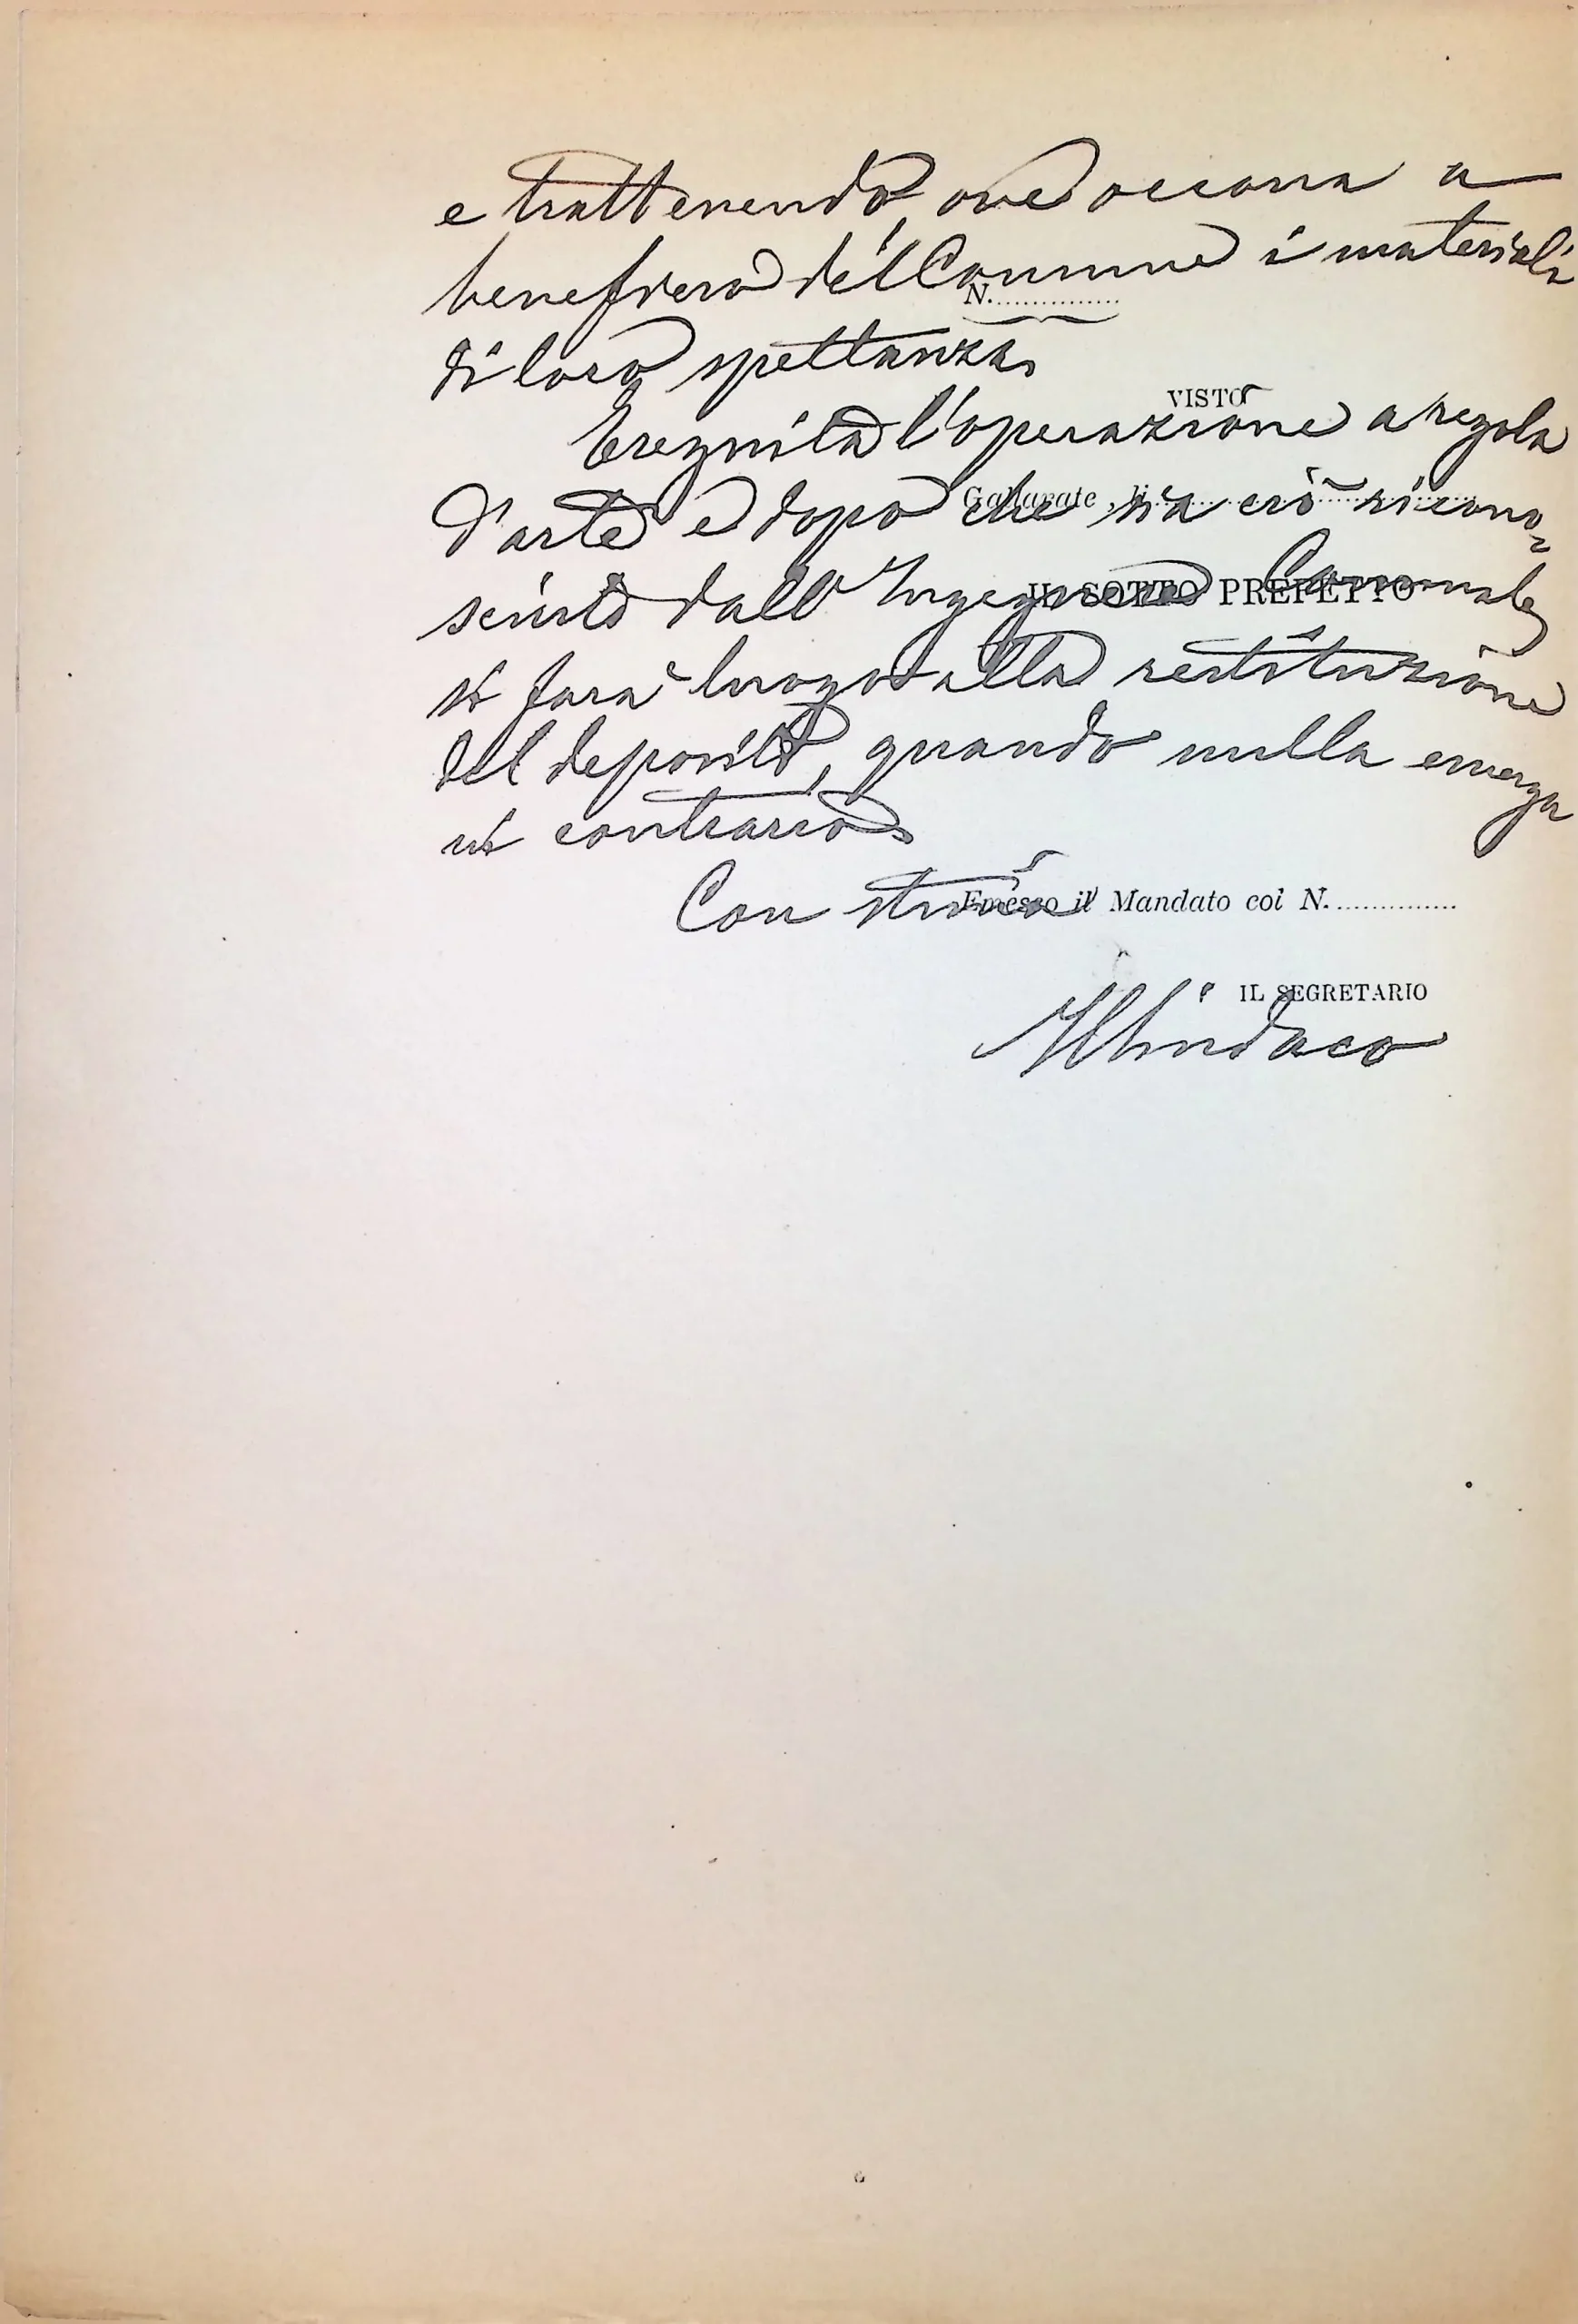 e trattenendo, ove occorra a
beneficio del Comune i materiali
N. ................
di loro spettanza.
VISTO
Eseguita l'operazione a regola
Gallarate, li ................
d'arte e dopo che sia ciò ricono=
sciuto dall'Ingegnere Comunale
IL SOTTO PREFETTO
si farà luogo alla restituzione
del deposito, quando nulla emerga
in contrario.
Con stima
Emesso il Mandato col N. ..............
IL SEGRETARIO
Il Sindaco